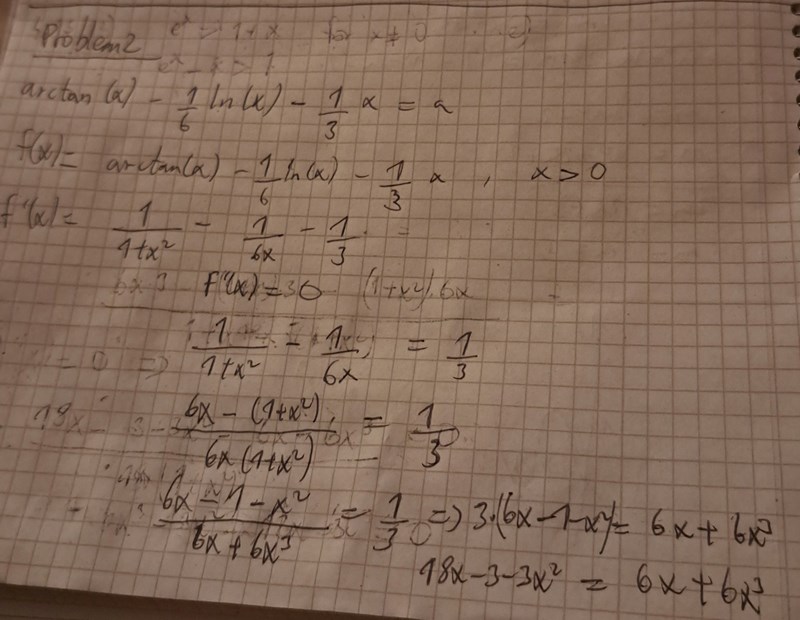 Problem2 eˣ > 1+x for x≠0
eˣ - x > 1
arctan(x) - 1/6 ln(x) - 1/3 x = a
f(x) = arctan(x) - 1/6 ln(x) - 1/3 x , x > 0
f'(x) = 1/(1+x²) - 1/(6x) - 1/3 =
f'(x) = 0 (1+x²) 6x
= 0 => 1/(1+x²) - 1/(6x) = 1/3
(6x - (1+x²))/(6x(1+x²)) = 1/3
(6x - 1 - x²)/(6x + 6x³) = 1/3 => 3·(6x-1-x²) = 6x + 6x³
18x - 3 - 3x² = 6x + 6x³